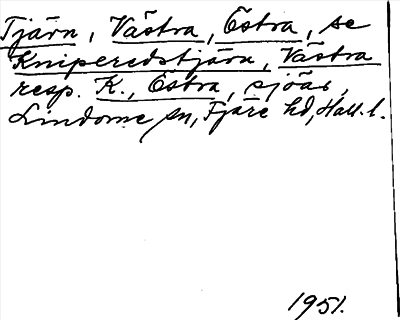 Tjärn, Västra, Östra, se
Kniperedstjärn, Västra
resp. K., Östra, sjöar,
Lindome sn, Fjäre hd, Hall. l.
1951.